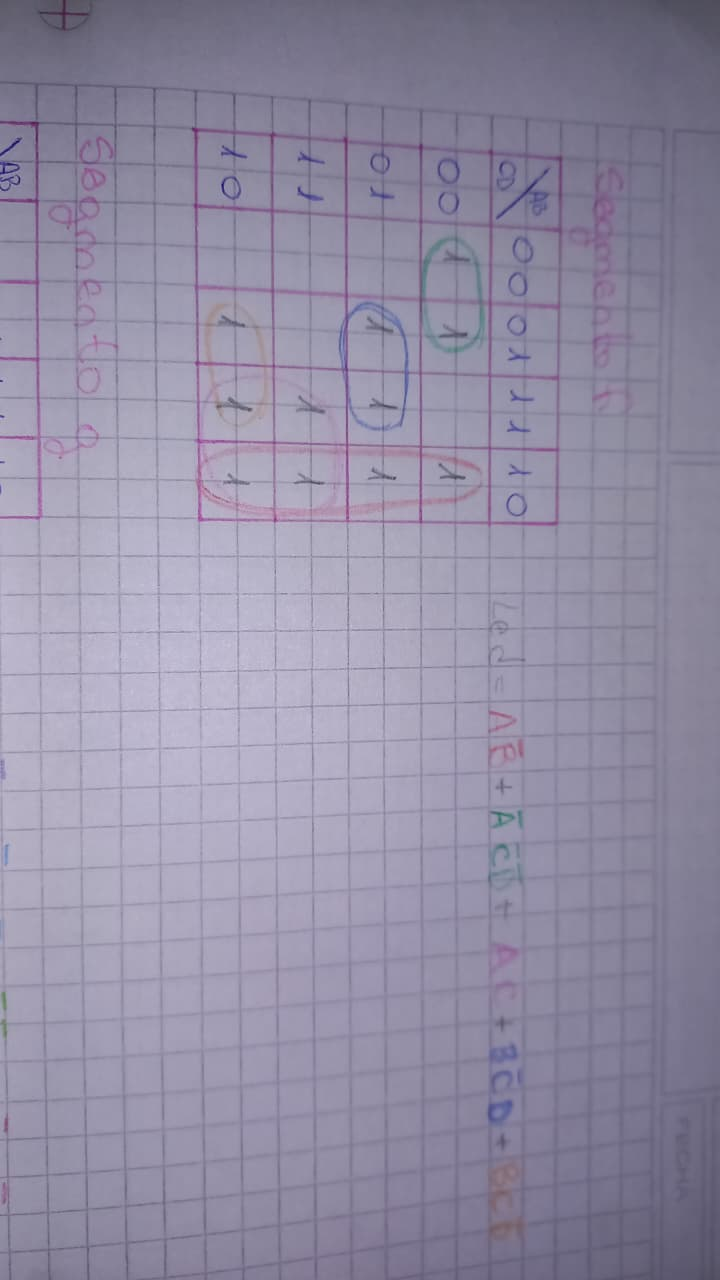 FECHA
Segmento f
CD\AB 00 01 11 10
00 1 1 1
01 1 1 1
11 1 1
10 1 1 1
Led = AB̅ + A̅C̅D̅ + AC + BC̅D + BCD̅
Segmento g
\AB